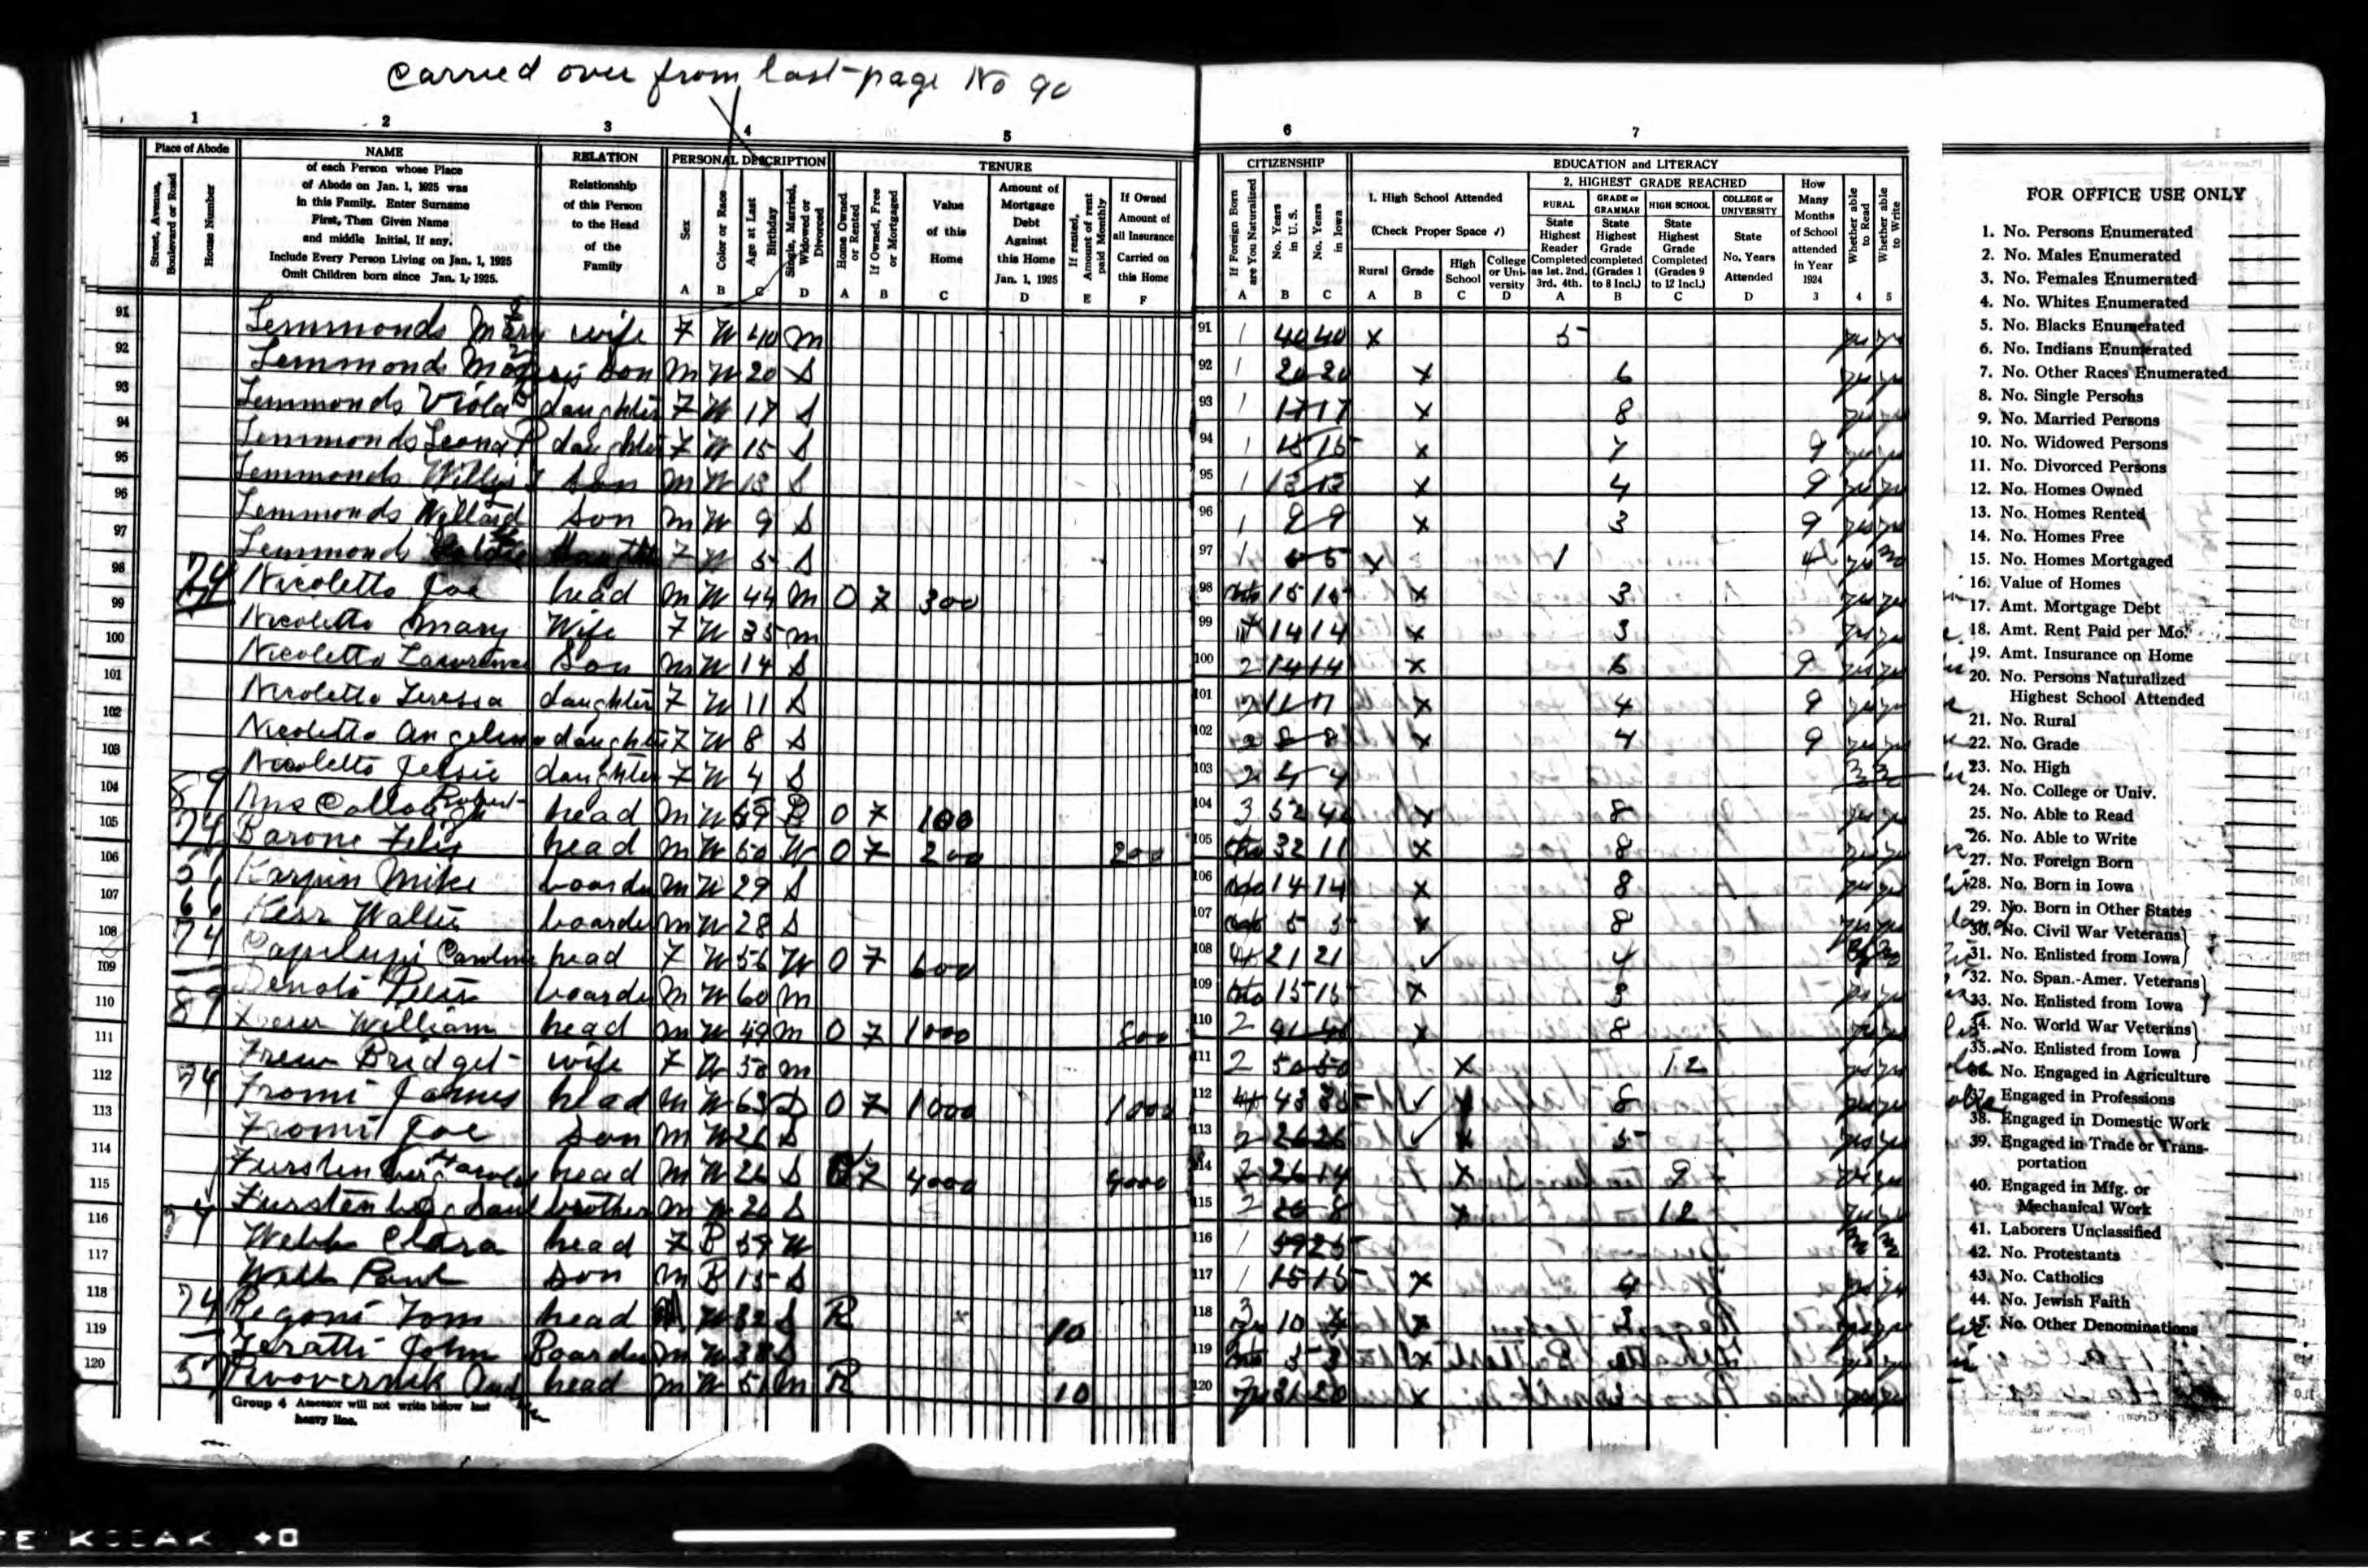 Carried over from last page No 90
1 2 3 4 5 6 7
Place of Abode
Street, Avenue, Boulevard or Road
House Number
NAME
of each Person whose Place
of Abode on Jan. 1, 1925 was
in this Family. Enter Surname
First, Then Given Name
and middle Initial, if any.
Include Every Person Living on Jan. 1, 1925
Omit Children born since Jan. 1, 1925.
RELATION
Relationship
of this Person
to the Head
of the
Family
PERSONAL DESCRIPTION
Sex A
Color or Race B
Age at Last Birthday C
Single, Married, Widowed or Divorced D
TENURE
Home Owned or Rented A
If Owned, Free or Mortgaged B
Value of this Home C
Amount of Mortgage Debt Against this Home Jan. 1, 1925 D
If rented, Amount of rent paid Monthly E
If Owned Amount of all Insurance Carried on this Home F
CITIZENSHIP
If Foreign Born are You Naturalized A
No. Years in U. S. B
No. Years in Iowa C
EDUCATION and LITERACY
1. High School Attended
(Check Proper Space ✓)
Rural A
Grade B
High School C
College or University D
2. HIGHEST GRADE REACHED
RURAL State Highest Reader Completed as 1st. 2nd. 3rd. 4th. A
GRADE or GRAMMAR State Highest Grade completed (Grades 1 to 8 Incl.) B
HIGH SCHOOL State Highest Grade Completed (Grades 9 to 12 Incl.) C
COLLEGE or UNIVERSITY State No. Years Attended D
How Many Months of School attended in Year 1924 3
Whether able to Read 4
Whether able to Write 5
91 Lemmonds Mary wife F W 40 M 91 1 40 40 x 5 yes yes
92 Lemmonds Morris son M W 20 S 92 1 20 20 x 6 yes yes
93 Lemmonds Viola daughter F W 17 S 93 1 17 17 x 8 yes yes
94 Lemmonds Leona daughter F W 15 S 94 1 15 15 x 7 9 yes yes
95 Lemmonds Willis son M W 13 S 95 1 13 13 x 4 9 yes yes
96 Lemmonds Willard son M W 9 S 96 1 9 9 x 3 9 yes yes
97 Lemmonds F W 5 S 97 1 5 x 1 4 yes no
98 74 Nicoletto Joe head M W 44 M O F 300 98 15 15 x 3 yes yes
99 Nicoletto Mary Wife F W 35 M 99 14 14 x 3 yes yes
100 Nicoletto Lawrence Son M W 14 S 100 2 14 14 x 6 9 yes yes
101 Nicoletto Teressa daughter F W 11 S 101 2 11 11 x 4 9 yes yes
102 Nicoletto Angelina daughter F W 8 S 102 2 8 8 x 4 9 yes yes
103 Nicoletto Jessie daughter F W 4 S 103 2 4 4 no no
104 89 Robert head M W O F 100 104 3 52 x 8 yes yes
105 74 Barone Felix head M W 50 W O F 200 200 105 32 11 x 8 yes yes
106 Karjin Mike boarder M W 29 S 106 14 14 x 8 yes yes
107 Kerr Walter boarder M W 28 S 107 5 5 x 8 yes yes
108 74 Capilupi Caroline head F W 56 W O F 600 108 21 21 ✓ 4
109 boarder M W 60 M 109 15 15 x 3 yes yes
110 89 William head M W 49 M O F 1000 800 110 2 x 8 yes yes
111 Frew Bridget wife F W 50 M 111 2 50 50 x 12 yes yes
112 74 Fromi James head M W 63 D O F 1000 1000 112 43 35 ✓ 8 yes yes
113 Fromi Joe Son M W 26 S 113 2 26 26 ✓ 5 yes yes
114 Furstenberg Harold head M W 26 S F 4000 4000 114 2 26 14 x 9 yes yes
115 Furstenberg Saul brother M W 20 S 115 2 20 8 x 12 yes yes
116 74 Webb Clara head F B 59 W 116 1 59 25 no no
117 Webb Paul son M B 15 S 117 1 15 15 x 4 yes yes
118 74 Regoni Tom head M W 32 S R 10 118 3 10 4 x 3 yes yes
119 Feratti John Boarder M W 38 S 119 x yes yes
120 head M W 51 M R 10 120 20 x yes yes
Group 4 Assessor will not write below last
heavy line.
FOR OFFICE USE ONLY
1. No. Persons Enumerated
2. No. Males Enumerated
3. No. Females Enumerated
4. No. Whites Enumerated
5. No. Blacks Enumerated
6. No. Indians Enumerated
7. No. Other Races Enumerated
8. No. Single Persons
9. No. Married Persons
10. No. Widowed Persons
11. No. Divorced Persons
12. No. Homes Owned
13. No. Homes Rented
14. No. Homes Free
15. No. Homes Mortgaged
16. Value of Homes
17. Amt. Mortgage Debt
18. Amt. Rent Paid per Mo.
19. Amt. Insurance on Home
20. No. Persons Naturalized
Highest School Attended
21. No. Rural
22. No. Grade
23. No. High
24. No. College or Univ.
25. No. Able to Read
26. No. Able to Write
27. No. Foreign Born
28. No. Born in Iowa
29. No. Born in Other States
30. No. Civil War Veterans
31. No. Enlisted from Iowa
32. No. Span.-Amer. Veterans
33. No. Enlisted from Iowa
34. No. World War Veterans
35. No. Enlisted from Iowa
36. No. Engaged in Agriculture
37. Engaged in Professions
38. Engaged in Domestic Work
39. Engaged in Trade or Trans-
portation
40. Engaged in Mfg. or
Mechanical Work
41. Laborers Unclassified
42. No. Protestants
43. No. Catholics
44. No. Jewish Faith
45. No. Other Denominations